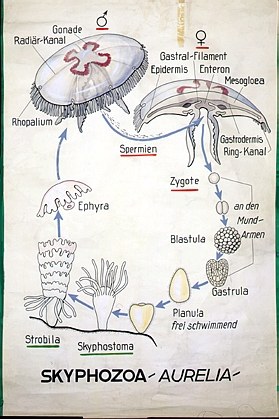 ♂
Gonade
Radiär-Kanal
♀
Gastral-Filament
Epidermis Enteron
Mesogloea
Rhopalium
Gastrodermis
Ring-Kanal
Spermien
Zygote
an den
Mund-
Armen
Ephyra
Blastula
Gastrula
Planula
frei schwimmend
Strobila
Skyphostoma
SKYPHOZOA - AURELIA -